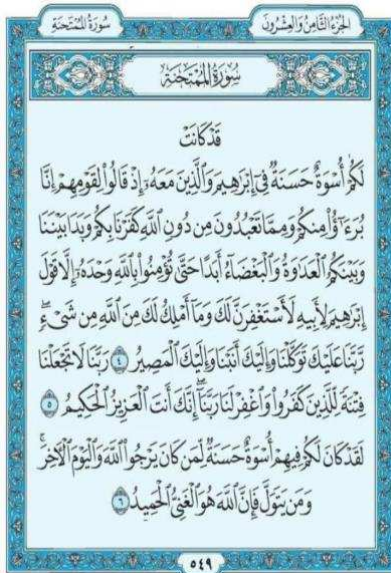 سُورَةُ المُمْتَحنَةِ
الجُزءُ الثَّامِنُ وَالعِشْرُونَ
سُورَةُ المُمْتَحنَةِ
قَدْ كَانَتْ
لَكُمْ أُسْوَةٌ حَسَنَةٌ فِىٓ إِبْرَٰهِيمَ وَٱلَّذِينَ مَعَهُۥٓ إِذْ قَالُوا۟ لِقَوْمِهِمْ إِنَّا
بُرَءَٰٓؤُا۟ مِنكُمْ وَمِمَّا تَعْبُدُونَ مِن دُونِ ٱللَّهِ كَفَرْنَا بِكُمْ وَبَدَا بَيْنَنَا
وَبَيْنَكُمُ ٱلْعَدَٰوَةُ وَٱلْبَغْضَآءُ أَبَدًا حَتَّىٰ تُؤْمِنُوا۟ بِٱللَّهِ وَحْدَهُۥٓ إِلَّا قَوْلَ
إِبْرَٰهِيمَ لِأَبِيهِ لَأَسْتَغْفِرَنَّ لَكَ وَمَآ أَمْلِكُ لَكَ مِنَ ٱللَّهِ مِن شَىْءٍۖ
رَّبَّنَا عَلَيْكَ تَوَكَّلْنَا وَإِلَيْكَ أَنَبْنَا وَإِلَيْكَ ٱلْمَصِيرُ ٤ رَبَّنَا لَا تَجْعَلْنَا
فِتْنَةً لِّلَّذِينَ كَفَرُوا۟ وَٱغْفِرْ لَنَا رَبَّنَآۖ إِنَّكَ أَنتَ ٱلْعَزِيزُ ٱلْحَكِيمُ ٥
لَقَدْ كَانَ لَكُمْ فِيهِمْ أُسْوَةٌ حَسَنَةٌ لِّمَن كَانَ يَرْجُوا۟ ٱللَّهَ وَٱلْيَوْمَ ٱلْءَاخِرَۚ
وَمَن يَتَوَلَّ فَإِنَّ ٱللَّهَ هُوَ ٱلْغَنِىُّ ٱلْحَمِيدُ ٦
٥٤٩